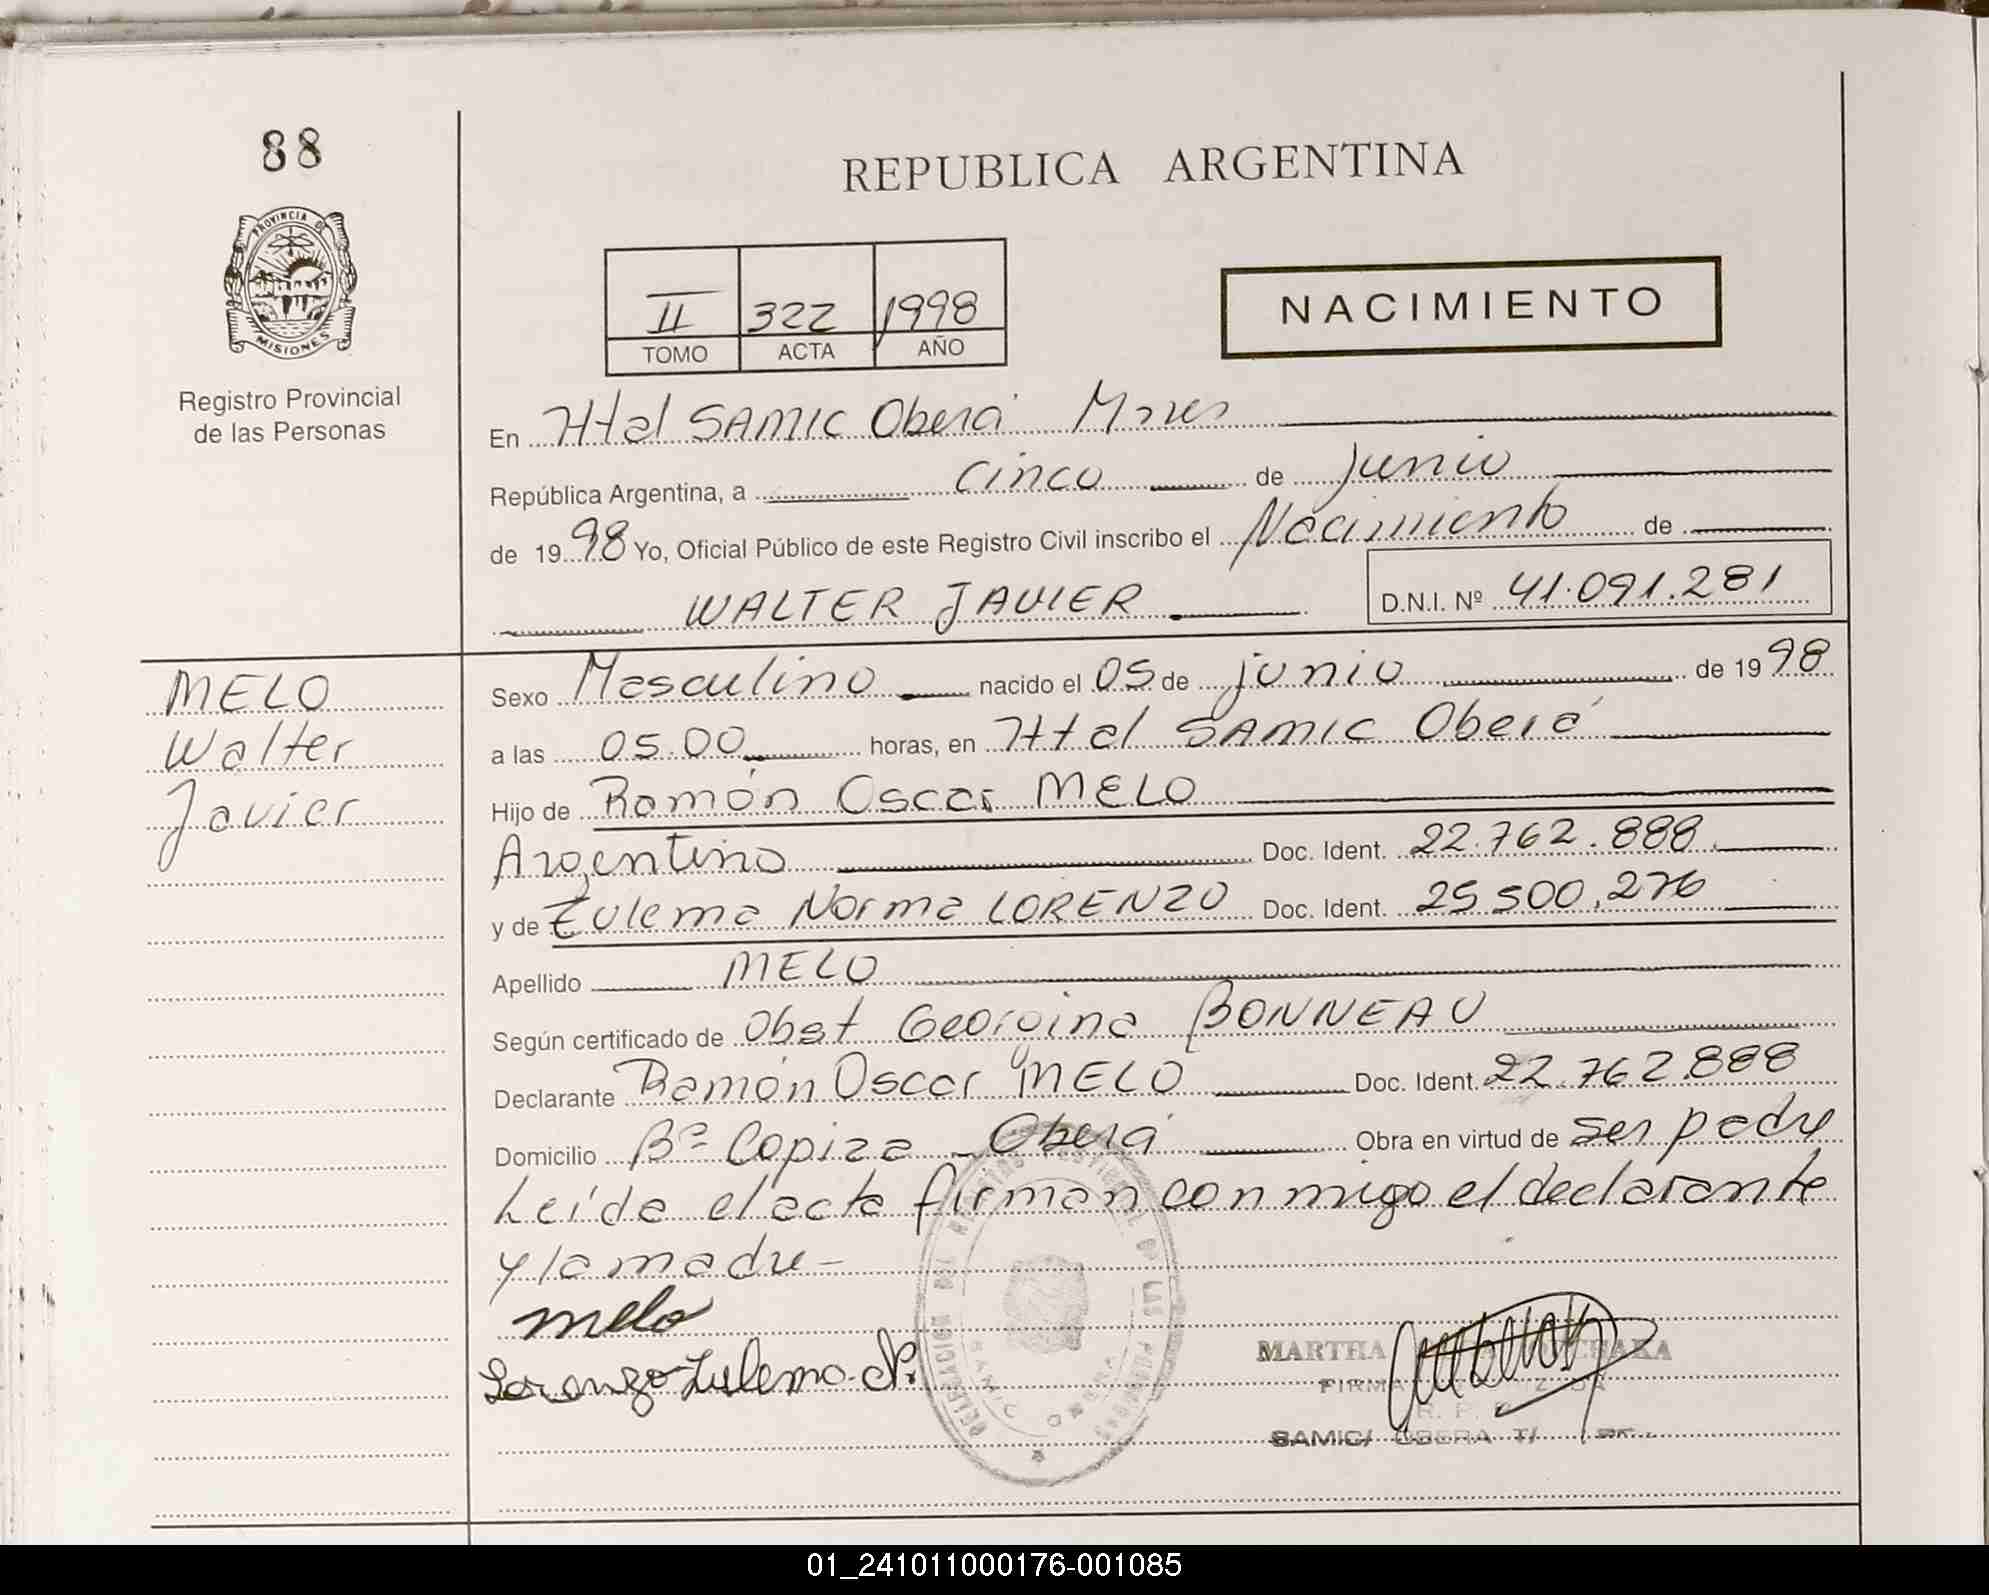 88
REPUBLICA ARGENTINA
PROVINCIA DE
MISIONES
Registro Provincial
de las Personas
II 322 1998
TOMO ACTA AÑO
NACIMIENTO
En Htal SAMIC Oberá Mnes
República Argentina, a cinco de junio
de 1998 Yo, Oficial Público de este Registro Civil inscribo el Nacimiento de
WALTER JAVIER D.N.I. Nº 41.091.281
MELO
Walter
Javier
Sexo Masculino nacido el 05 de junio de 1998
a las 05.00 horas, en Htal SAMIC Oberá
Hijo de Ramón Oscar MELO
Argentino Doc. Ident. 22.762.888
y de Zulema Norma LORENZO Doc. Ident. 25.500.276
Apellido MELO
Según certificado de Obst Georgina BONNEAU
Declarante Ramón Oscar MELO Doc. Ident. 22.762.888
Domicilio Bº Copiza - Oberá Obra en virtud de ser padre
Leída el acta firman conmigo el declarante
y la madre -
melo
Lorenzo Zulema N.
DELEGACION DEL REGISTRO PROVINCIAL DE LAS PERSONAS
SAMIC OBERA
MARTHA
FIRMA
R. P.
SAMIC/ OBERA
01_241011000176-001085